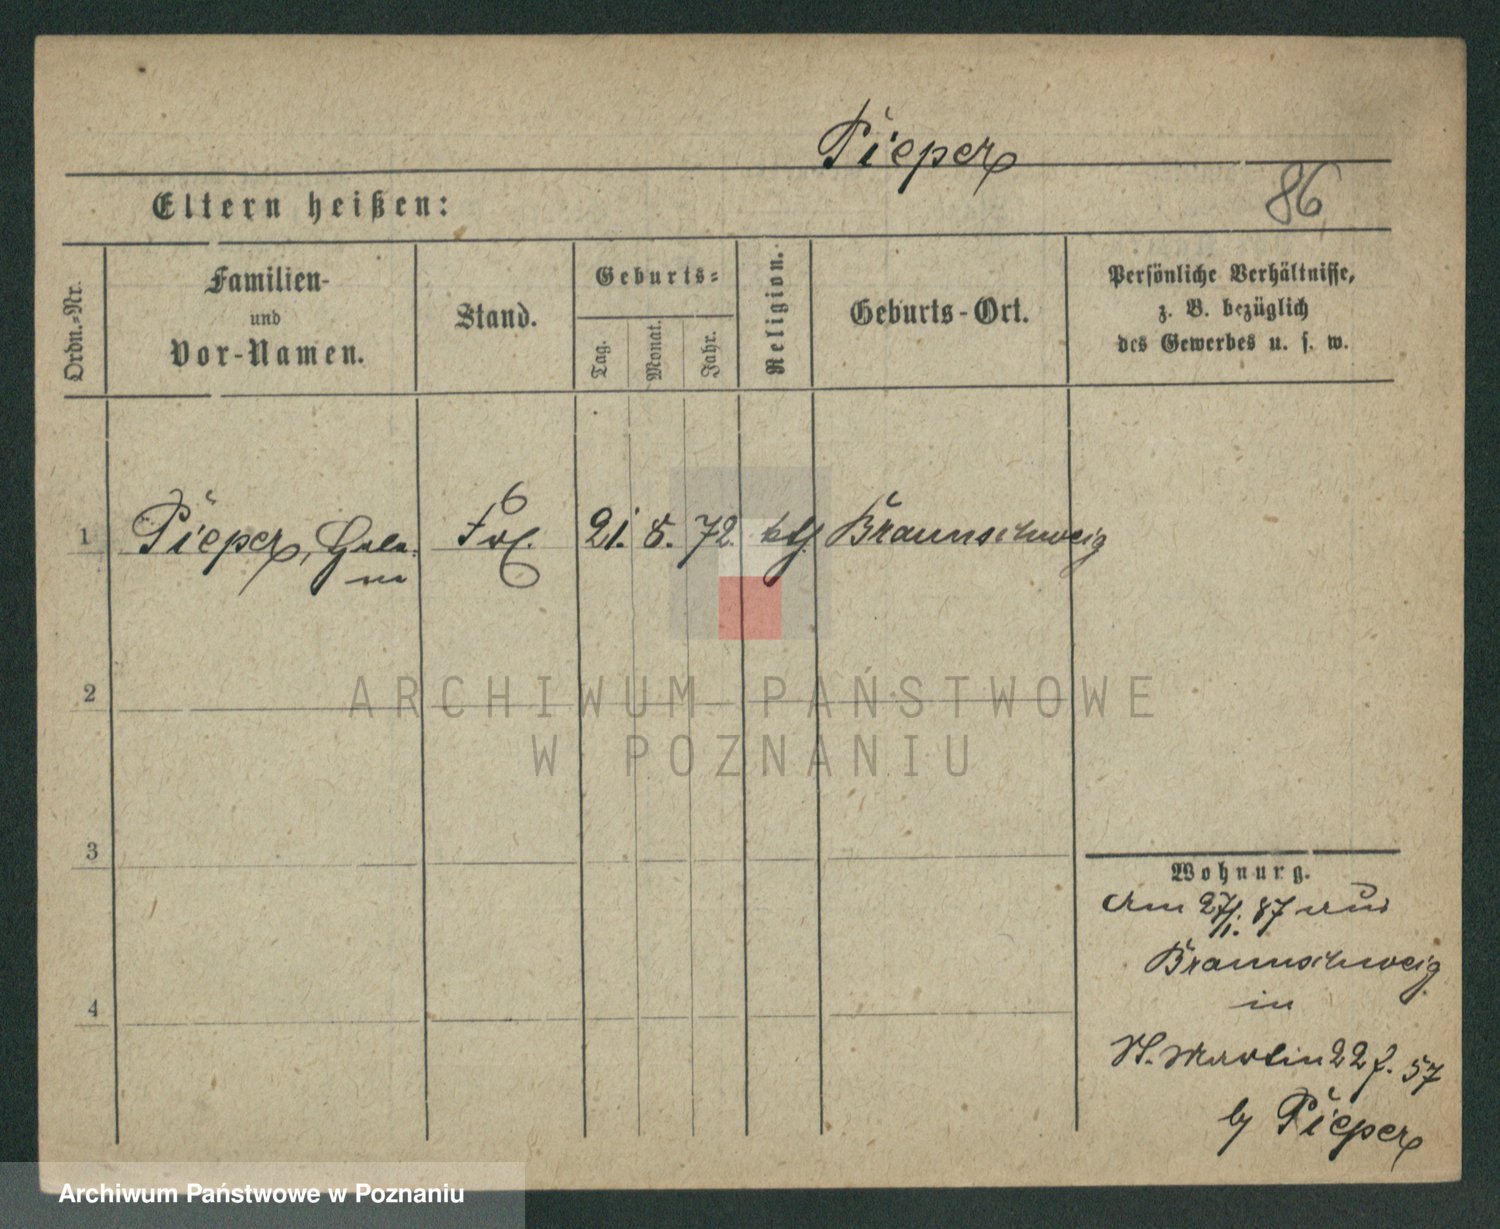 Pieper
86
Eltern heißen:
Ordn.-Nr.
Familien-
und
Vor-Namen.
Stand.
Geburts-
Tag.
Monat.
Jahr.
Religion.
Geburts-Ort.
Persönliche Verhältnisse,
z. B. bezüglich
des Gewerbes u. s. w.
1 Pieper, 21. 8. 72. Braunschweig
2
3
4
Wohnung.
Am 27/1. 87 aus
Braunschweig
in
St. Martin 22 f. 57
by Pieper
ARCHIWUM PAŃSTWOWE
W POZNANIU
Archiwum Państwowe w Poznaniu